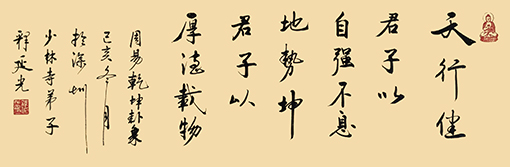 天行健
君子以
自强不息
地勢坤
君子以
厚德載物
周易乾坤卦象
己亥冬月
於深圳
少林寺弟子
釋延光